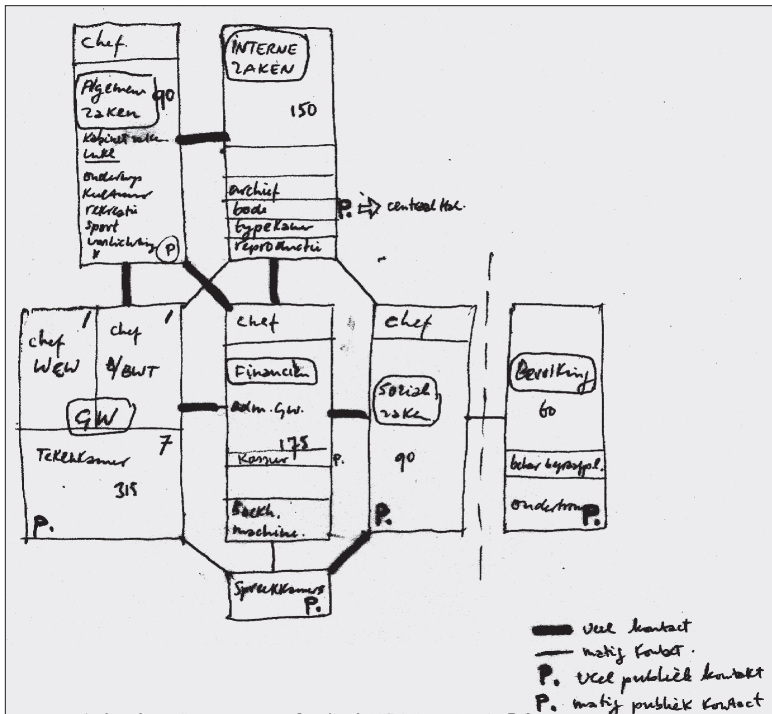 chef.
Algemene
zaken
90
Kabinet zaken
inkl
onderwijs
Kultuur
rekreatie
sport
voorlichting
P
INTERNE
ZAKEN
150
archief
bode
P. centrale hal.
typekamer
reproductie
chef
W&W
chef
BWT
GW
Tekenkamer
7
315
P.
chef
Financiën
adm. GW.
175
P.
Boekh.
machine.
chef
Sociale
zaken
90
P.
Bevolking
60
P.
Spreekkamers
P.
veel kontact
matig kontakt.
P. veel publiek kontakt
P. matig publiek kontact